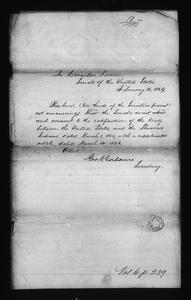 In Executive Session,
Senate of the United States,
February 16, 1869
Resolved, (two thirds of the Senators present
concurring,) That the Senate do advise
and consent to the ratification of the treaty
between the United States and the
Indians, dated March 1, with a supplementary
article, dated March 14, 1868.
Attest:
Geo. C. Gorham
Secretary.
Vol 6, p. 239